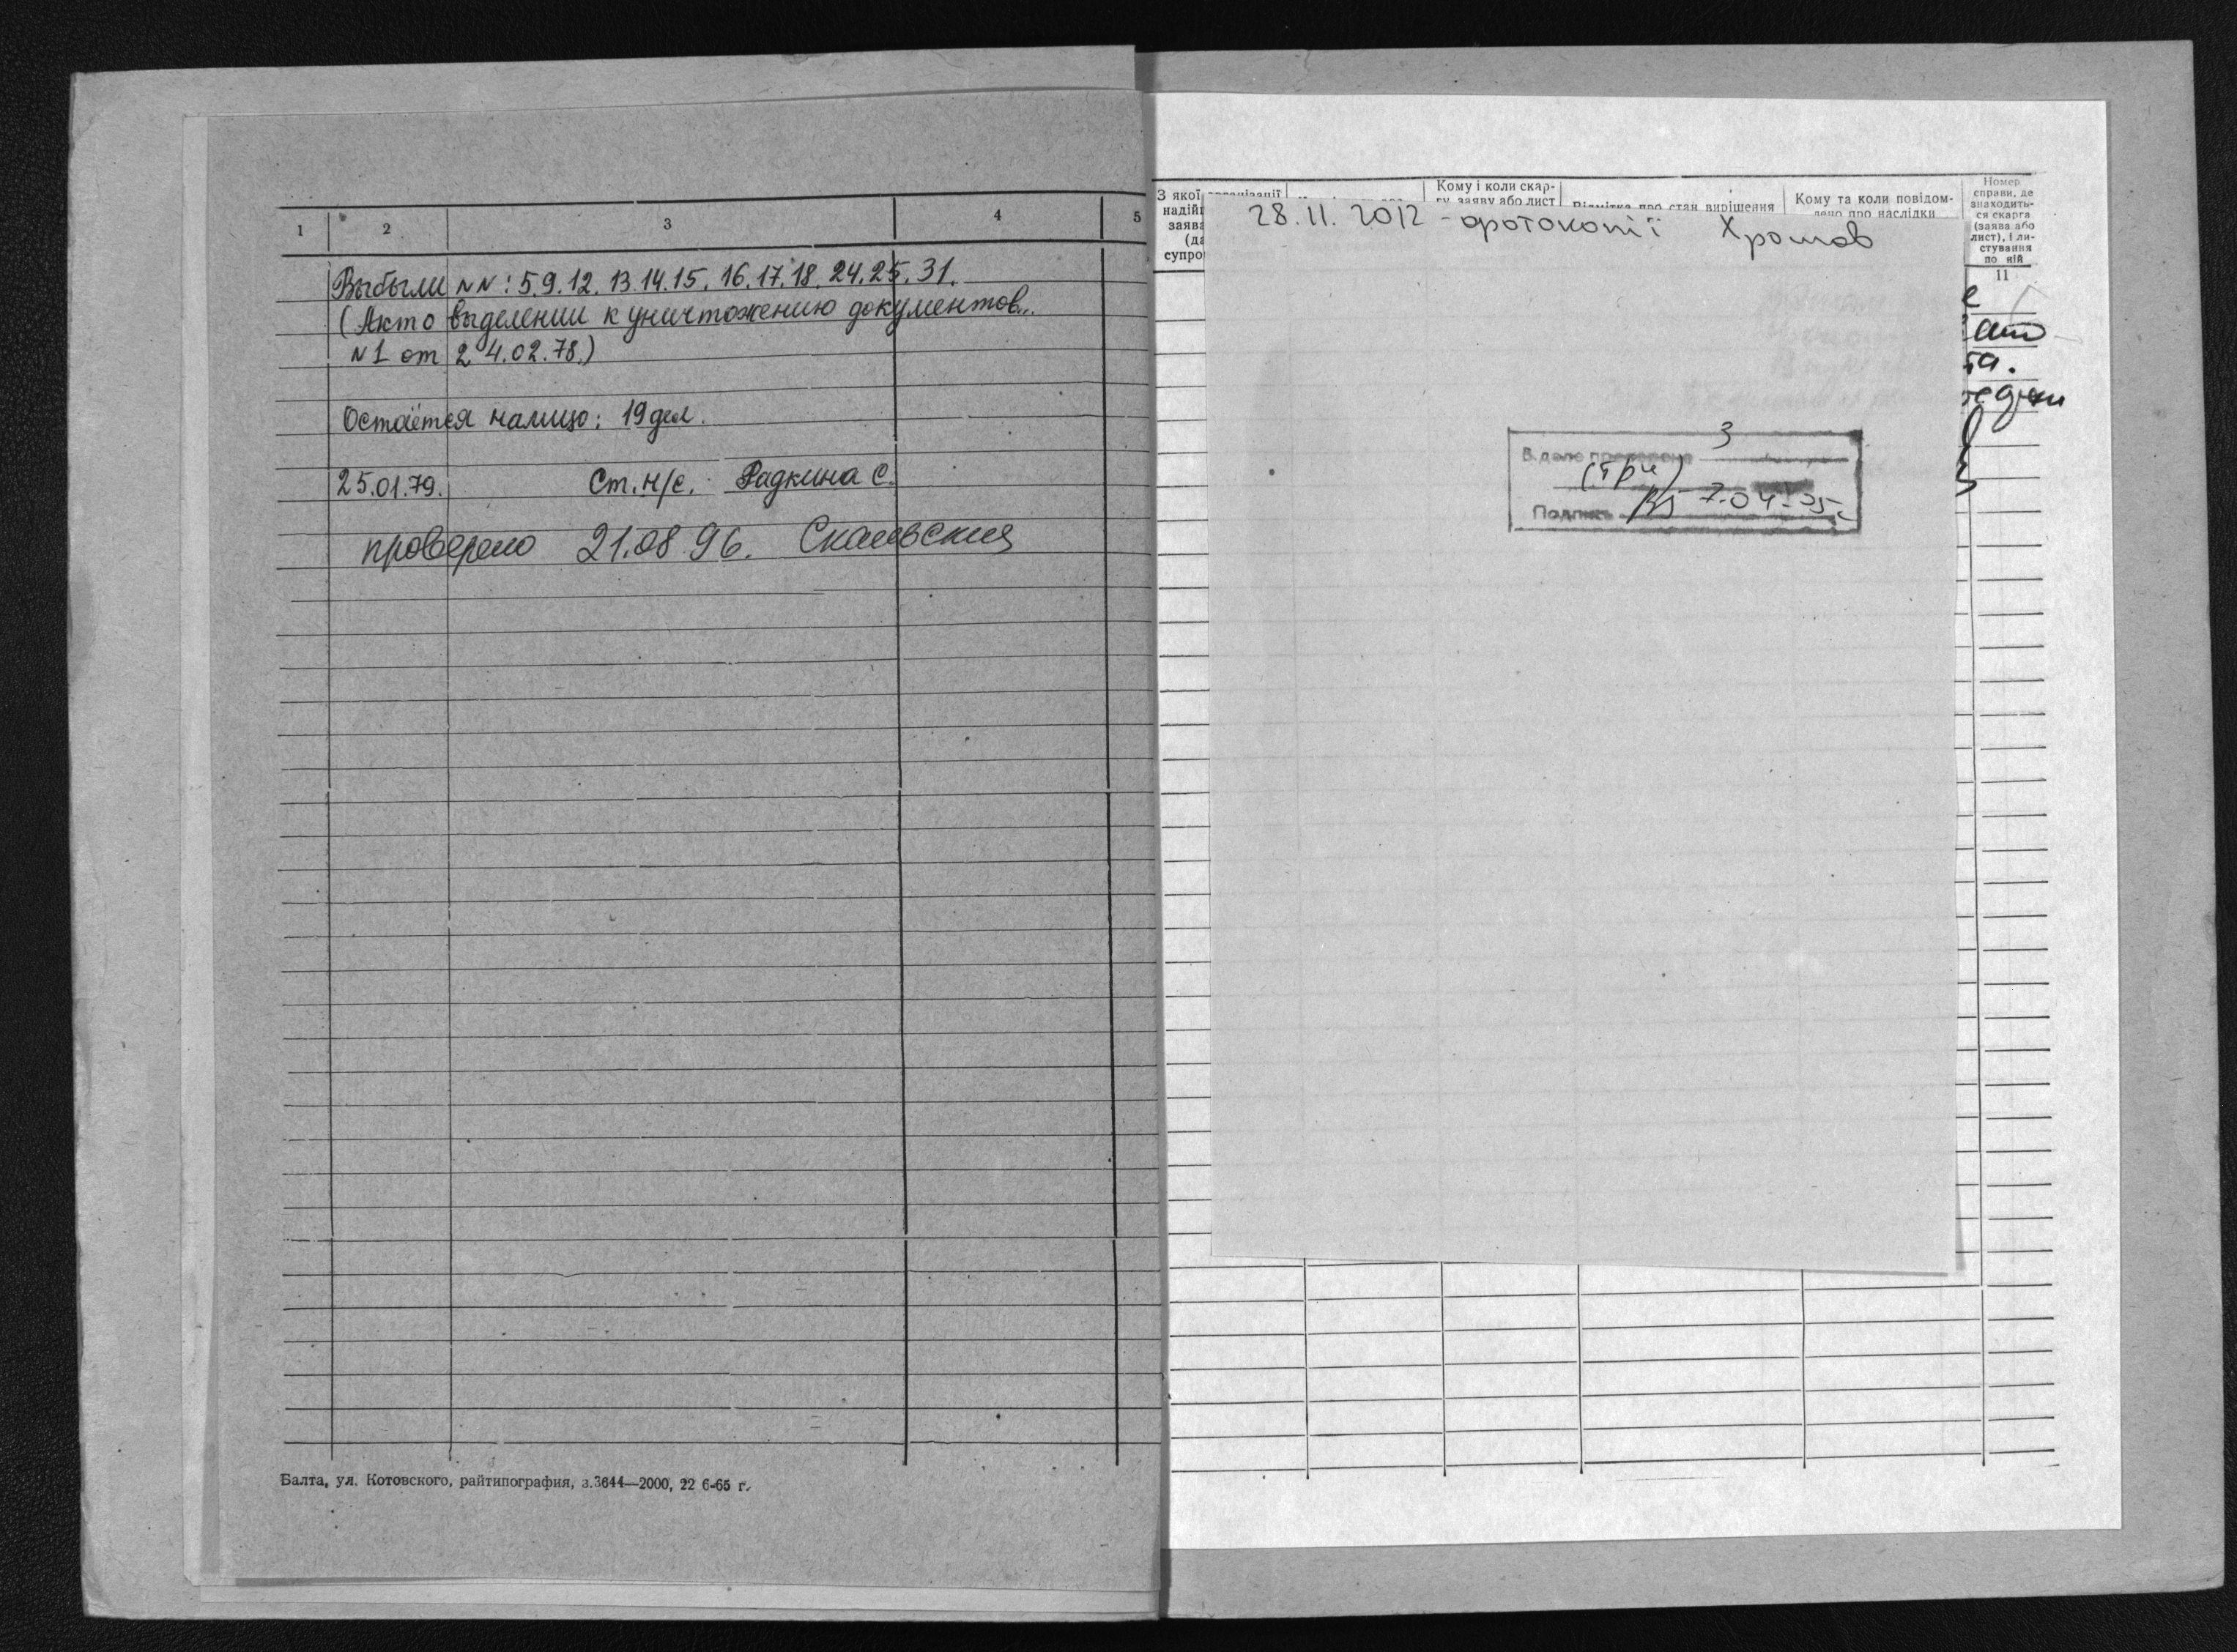 1 2 3 4 5
Выбыли NN: 5.9.12. 13.14.15. 16.17.18. 24.25. 31.
(Акт о выделении к уничтожению документов
N1 от 24.02.78.)
Остаётся налицо: 19 дел.
25.01.79. Ст. н/с. Радкина С.
проверено 21.08 96.
Балта, ул. Котовского, райтипография, з.3644—2000, 22 6-65 г.
З якої
надій
заява
(да
супро
Кому і коли скар-
гу, заяву або лист
Відмітка про стан вирішення
Кому та коли повідом-
лено про наслідки
Номер
справи, де
знаходить-
ся скарга
(заява або
лист), і ли-
стування
по ній
11
28.11.2012 - фотокопії Хромов
3
В деле
(три)
Подпись 7-04-